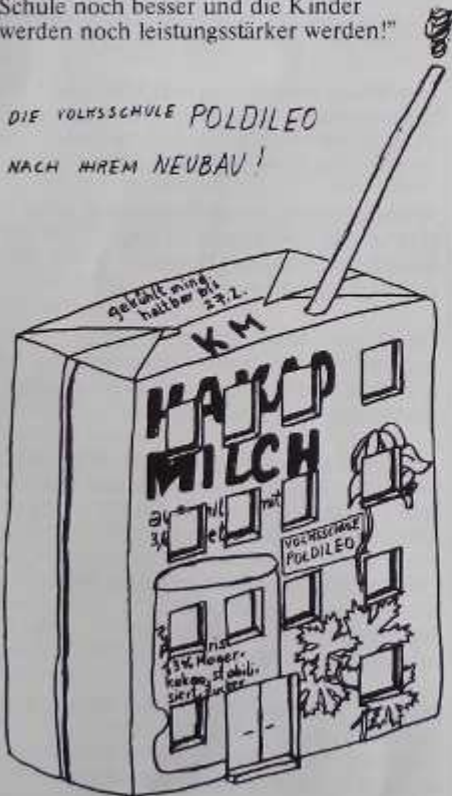 Schule noch besser und die Kinder
werden noch leistungsstärker werden!"
DIE VOLKSSCHULE POLDILEO
NACH IHREM NEUBAU!
gekühlt mind.
haltbar bis
27.2.
KM
KAKAO
MILCH
mit
3,
VOLKSSCHULE
POLDILEO
3% Mager-
kakao, stabili-
siert, Zucker